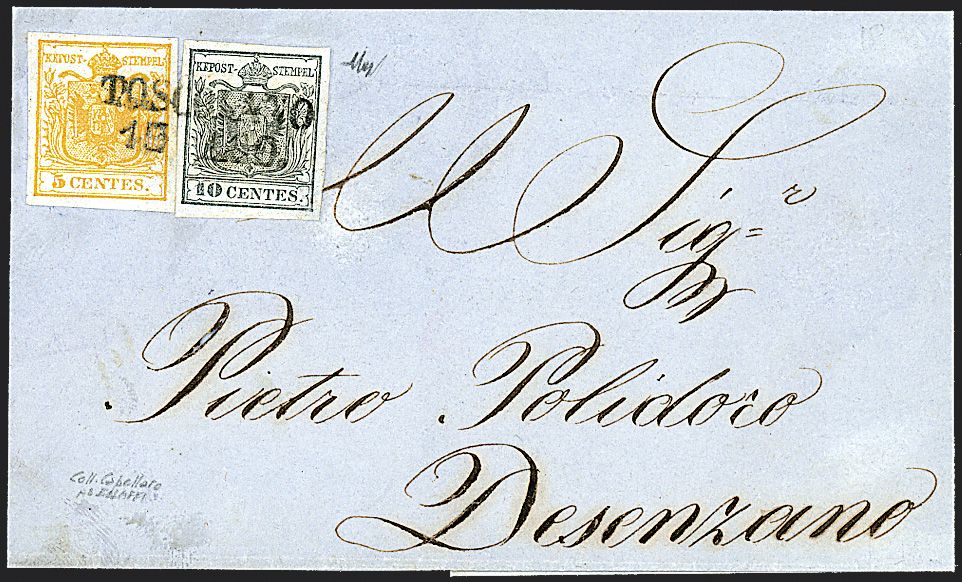 KKPOST-STEMPEL
5 CENTES.
KKPOST-STEMPEL
10 CENTES.
Al Sig.r
Pietro Polidoro
Desenzano
Coll. Capellaro